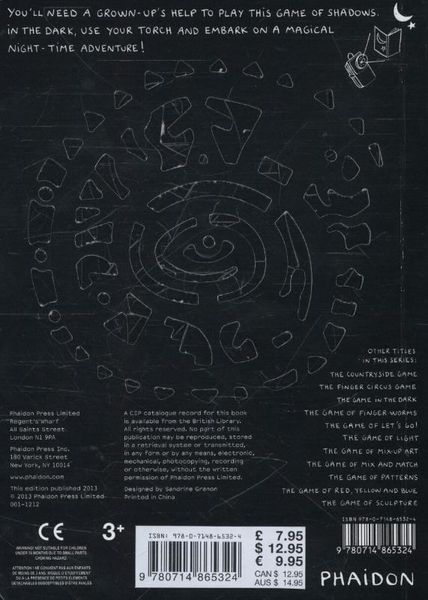 YOU'LL NEED A GROWN-UP'S HELP TO PLAY THIS GAME OF SHADOWS.
IN THE DARK, USE YOUR TORCH AND EMBARK ON A MAGICAL
NIGHT-TIME ADVENTURE!
OTHER TITLES
IN THIS SERIES:
THE COUNTRYSIDE GAME
THE FINGER CIRCUS GAME
THE GAME IN THE DARK
THE GAME OF FINGER WORMS
THE GAME OF LET'S GO!
THE GAME OF LIGHT
THE GAME OF MIX-UP ART
THE GAME OF MIX AND MATCH
THE GAME OF PATTERNS
THE GAME OF RED, YELLOW AND BLUE
THE GAME OF SCULPTURE
Phaidon Press Limited
Regent's Wharf
All Saints Street
London N1 9PA
Phaidon Press Inc.
180 Varick Street
New York, NY 10014
www.phaidon.com
This edition published 2013
© 2013 Phaidon Press Limited
001-1212
A CIP catalogue record for this book
is available from the British Library.
All rights reserved. No part of this
publication may be reproduced, stored
in a retrieval system or transmitted,
in any form or by any means, electronic,
mechanical, photocopying, recording
or otherwise, without the written
permission of Phaidon Press Limited.
Designed by Sandrine Granon
Printed in China
CE 3+
WARNING! NOT SUITABLE FOR CHILDREN
UNDER 36 MONTHS DUE TO SMALL PARTS.
CHOKING HAZARD
ATTENTION ! NE CONVIENT PAS AUX ENFANTS
DE MOINS DE 3 ANS. RISQUE D'ÉTOUFFEMENT
OU À LA PRÉSENCE DE PETITS ÉLÉMENTS
DÉTACHABLES SUSCEPTIBLES D'ÊTRE AVALÉS.
ISBN: 978-0-7148-6532-4
9 780714 865324
£ 7.95
$ 12.95
€ 9.95
CAN $ 12.95
AUS $ 14.95
ISBN 978-0-7148-6532-4
9 780714 865324
PHAIDON